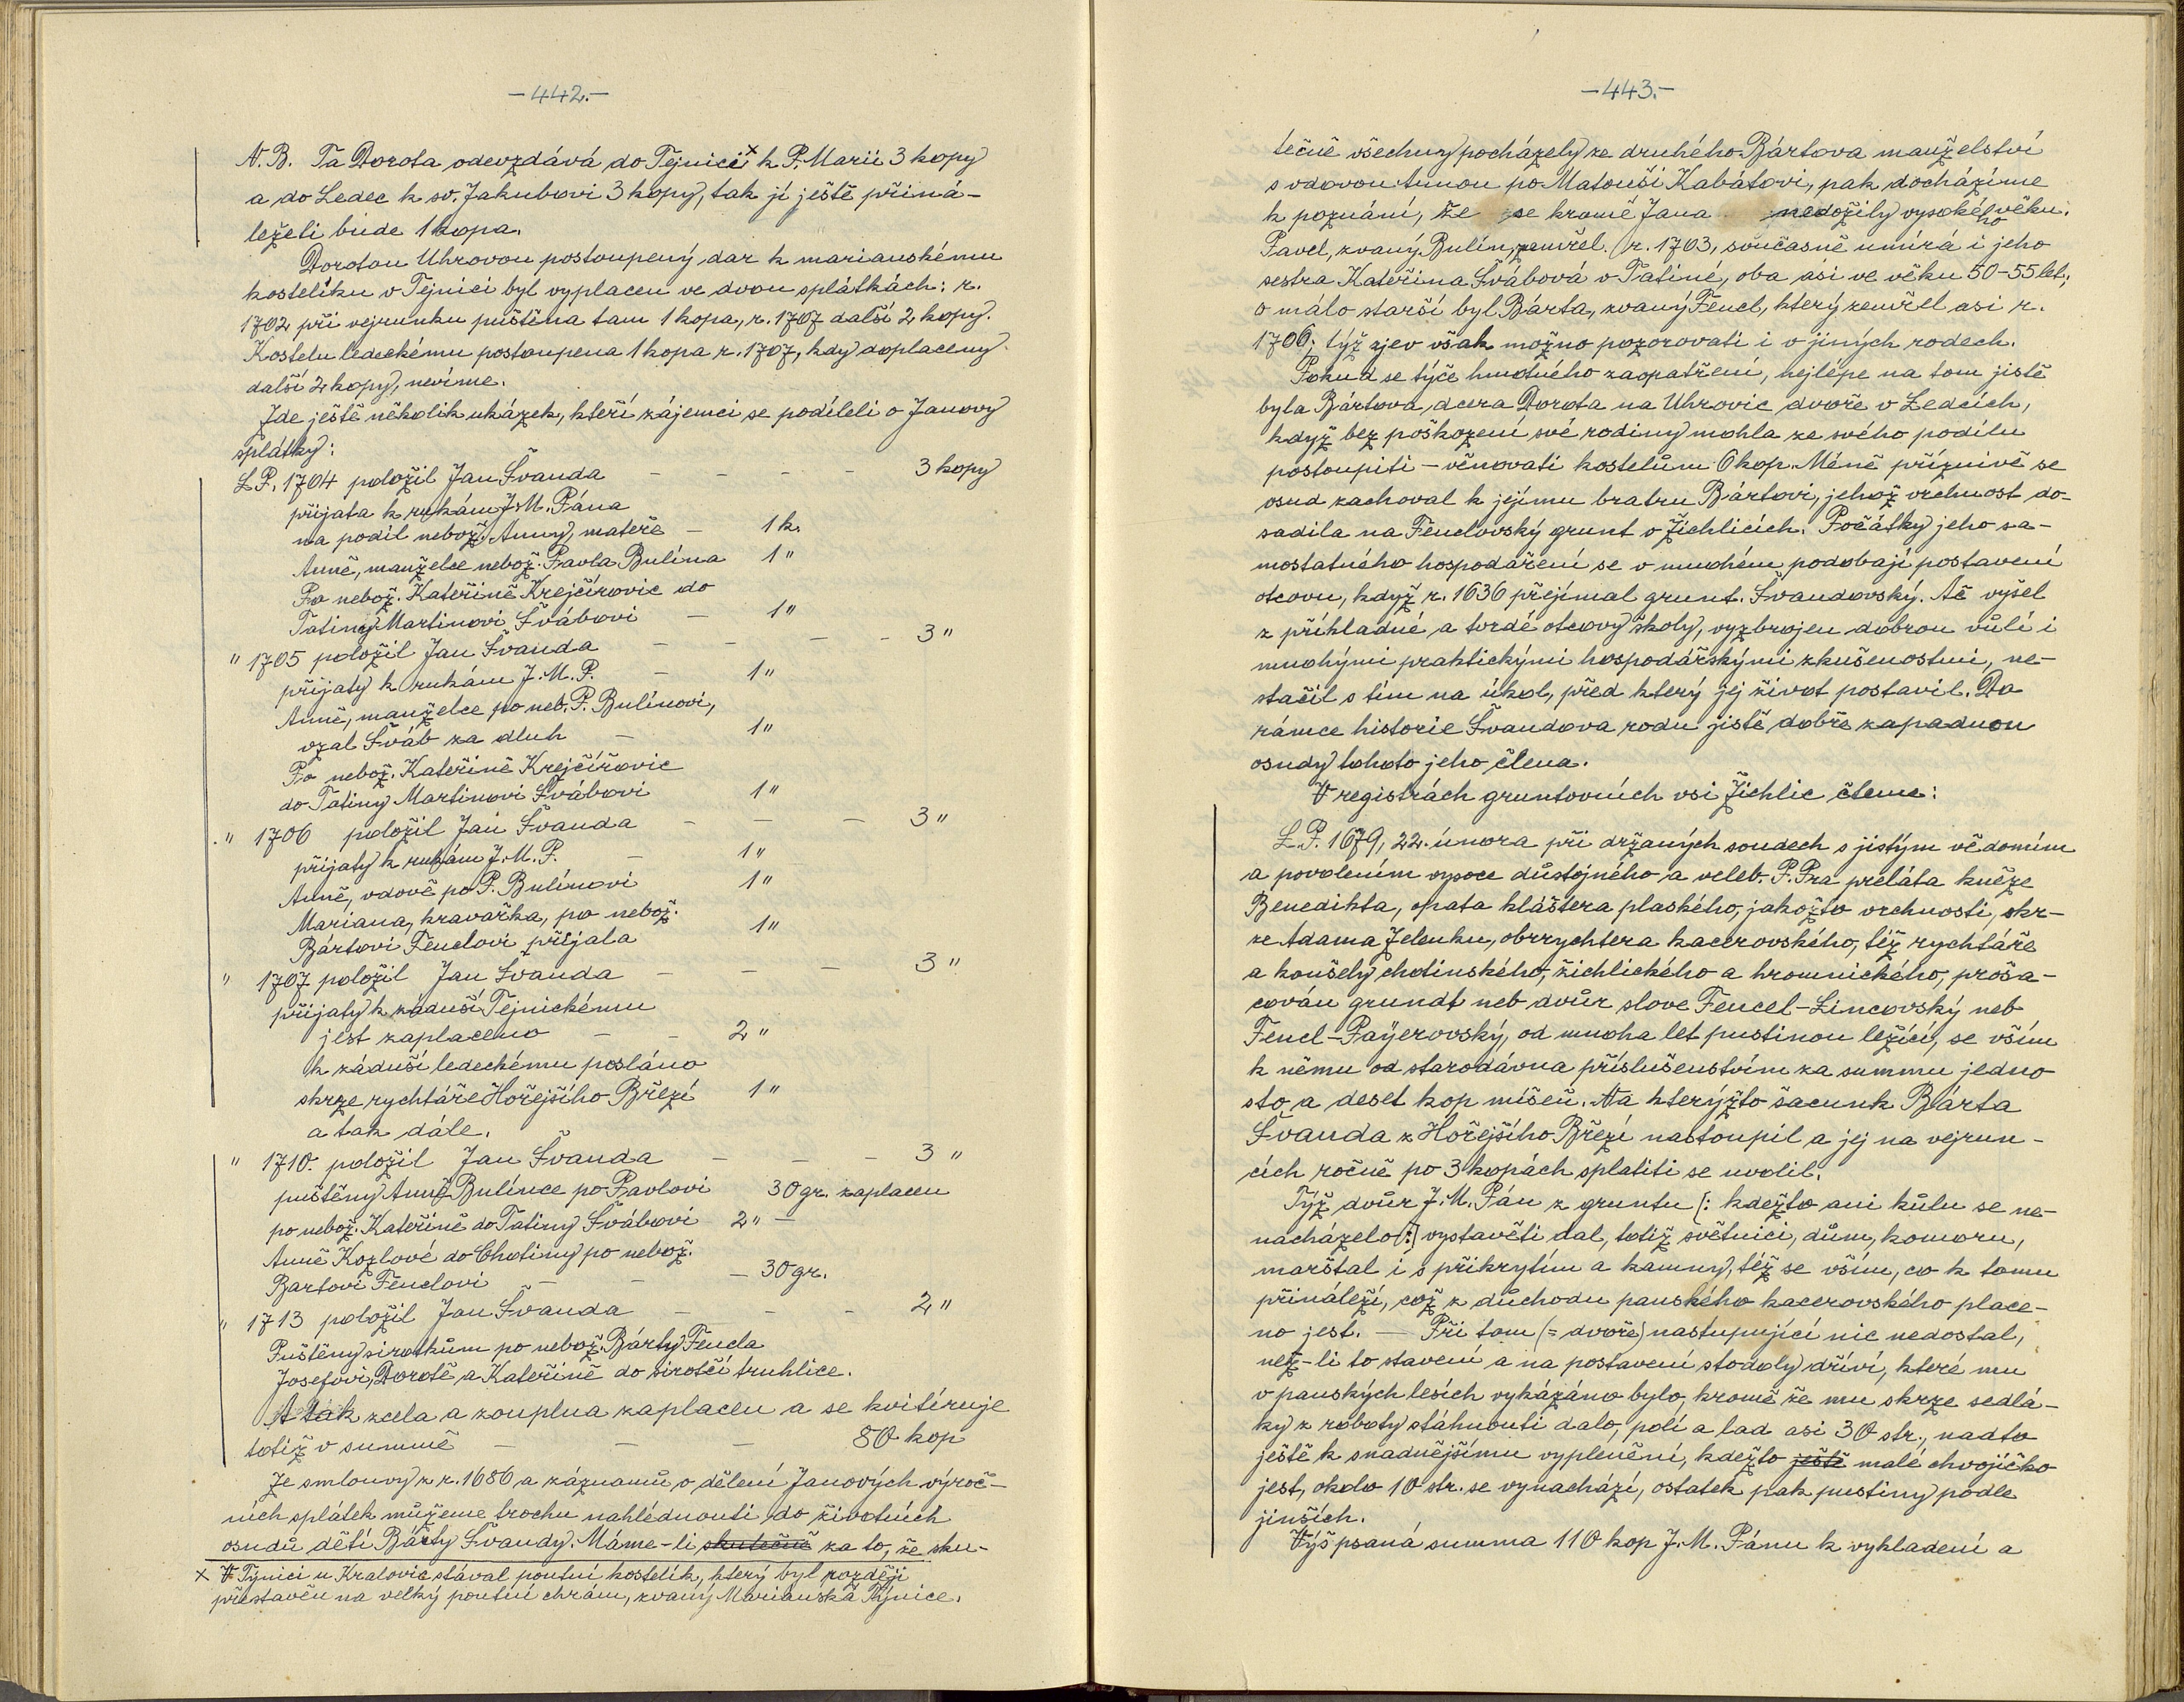 -442.-
N.B. Ta Dorota odevzdává do Tejnicix k P. Marii 3 kopy
a do Ledec k sv. Jakubovi 3 kopy, tak jí ještě přiná-
ležeti bude 1 kopa.
Dorotou Uhrovou postoupený dar k marianskému
kostelíku v Tejnici byl vyplacen ve dvou splátkách: r.
1702 při vejrunku puštěna tam 1 kopa, r. 1707 další 2 kopy.
Kostelu ledeckému postoupena 1 kopa r. 1707, kdy doplaceny
další 2 kopy, nevíme.
Zde ještě několik ukázek, kteří zájemci se podíleli o Janovy
splátky:
L.P. 1704 položil Jan Švanda - - - - 3 kopy
přijata k rukám J.M. Pána
na podíl nebož. Anny, mateře - 1 k.
Anně, manželce nebož. Pavla Bulína 1 "
Po nebož. Kateřině Krejčírovic do
Tatiny Martinovi Švábovi - 1 "
" 1705 položil Jan Švanda - - - - 3 "
přijaty k rukám J.M.P. - 1 "
Anně, manželce po neb. P. Bulínovi,
vzal Šváb za dluh - 1 "
Po nebož. Kateřině Krejčířovic
do Tatiny Martinovi Švábovi 1 "
" 1706 položil Jan Švanda - - - 3 "
přijaty k rukám J.M.P. - 1 "
Anně, vdově po P. Bulínovi 1 "
Mariana, kravařka, po nebož.
Bártovi Fenclovi přijala 1 "
" 1707 položil Jan Švanda - - - 3 "
přijaty k záduší Tejnickému
jest zaplaceno - - 2 "
k záduší ledeckému posláno
skrze rychtáře Hořejšího Březí 1 "
a tak dále.
" 1710. položil Jan Švanda - - - 3 "
puštěny Anně Bulínce po Pavlovi 30 gr. zaplacen
po nebož. Kateřině do Tatiny Švábovi 2 " -
Anně Kozlové do Chotiny po nebož.
Bartovi Fenclovi - - - 30 gr.
" 1713 položil Jan Švanda - - - 2 "
Puštěny sirotkům po nebož. Bárty Fencla
Josefovi, Dorotě a Kateřině do sirotčí truhlice.
A tak zcela a zouplna zaplacen a se kvitíruje
totiž v summě - - - 80 kop
Ze smlouvy z r. 1686 a záznamů o dělení Janových výroč-
ních splátek můžeme trochu nahlédnouti do životních
osudů dětí Bárty Švandy. Máme-li skutečně za to, že sku-
x V Týnici u Kralovic stával poutní kostelík, který byl později
přestavěn na velký poutní chrám, zvaný Marianská Týnice.
-443.-
tečně všechny pocházely ze druhého Bártova manželství
s vdovou Annou po Matouši Kabátovi, pak docházíme
k poznání, že se kromě Jana nedožily vysokého věku.
Pavel, zvaný Bulín, zemřel r. 1703, současně umírá i jeho
sestra Kateřina Švábová v Tatiné, oba asi ve věku 50-55 let;
o málo starší byl Bárta, zvaný Fencl, který zemřel asi r.
1706; týž zjev však možno pozorovati i v jiných rodech.
Pokud se týče hmotného zaopatření, nejlépe na tom jistě
byla Bártova dcera Dorota na Uhrovic dvoře v Ledcích,
když bez poškození své rodiny mohla ze svého podílu
postoupiti - věnovati kostelům 6 kop. Méně příznivě se
osud zachoval k jejímu bratru Bártovi, jehož vrchnost do-
sadila na Fenclovský grunt v Žichlicích. Počátky jeho sa-
mostatného hospodaření se v mnohém podobají postavení
otcovu, když r. 1636 přejímal grunt Švandovský. Ač vyšel
z příkladné a tvrdé otcovy školy, vyzbrojen dobrou vůlí i
mnohými praktickými hospodářskými zkušenostmi, ne-
stačil s tím na úkol, před který jej život postavil. Do
rámce historie Švandova rodu jistě dobře zapadnou
osudy tohoto jeho člena.
V registrách gruntovních vsi Žichlic čteme:
L.P. 1679, 22. února při držaných soudech s jistým vědomím
a povolením vysoce důstojného a veleb. P. Pra preláta kněze
Benedikta, opata kláštera plaského, jakožto vrchnosti, skr-
ze Adama Jelenku, obrrychtera kacerovského, též rychtáře
a konšely chotinského, žichlického a hromnického, proša-
cován grundt neb dvůr slove Fencel-Lincovský neb
Fencl-Paÿerovský, od mnoha let pustinou ležící, se vším
k němu od starodávna příslušenstvím za summu jedno
sto a deset kop míšeň. Na kterýžto šacunk Bárta
Švanda z Hořejšího Březí nastoupil a jej na vejrun-
cích ročně po 3 kopách splatiti se uvolil.
Týž dvůr J.M. Pán z gruntu (: kdežto ani kůlu se ne-
nacházelo :) vystavěti dal, totiž světnici, dům, komoru,
marštal i s přikrytím a kamny, též se vším, co k tomu
přináleží, což z důchodu panského kacerovského place-
no jest. - Při tom (= dvoře) nastupující nic nedostal,
než-li to stavení a na postavení stodoly dříví, které mu
v panských lesích vykázáno bylo, kromě že mu skrze sedlá-
ky z roboty stáhnouti dalo, polí a lad asi 30 str., nadto
ještě k snadnějšímu vyplenění, kdežto ještě malé chvojíčko
jest, okolo 10 str. se vynachází, ostatek pak pustiny podle
jinších.
Výš psaná summa 110 kop J.M. Pánu k vykladení a